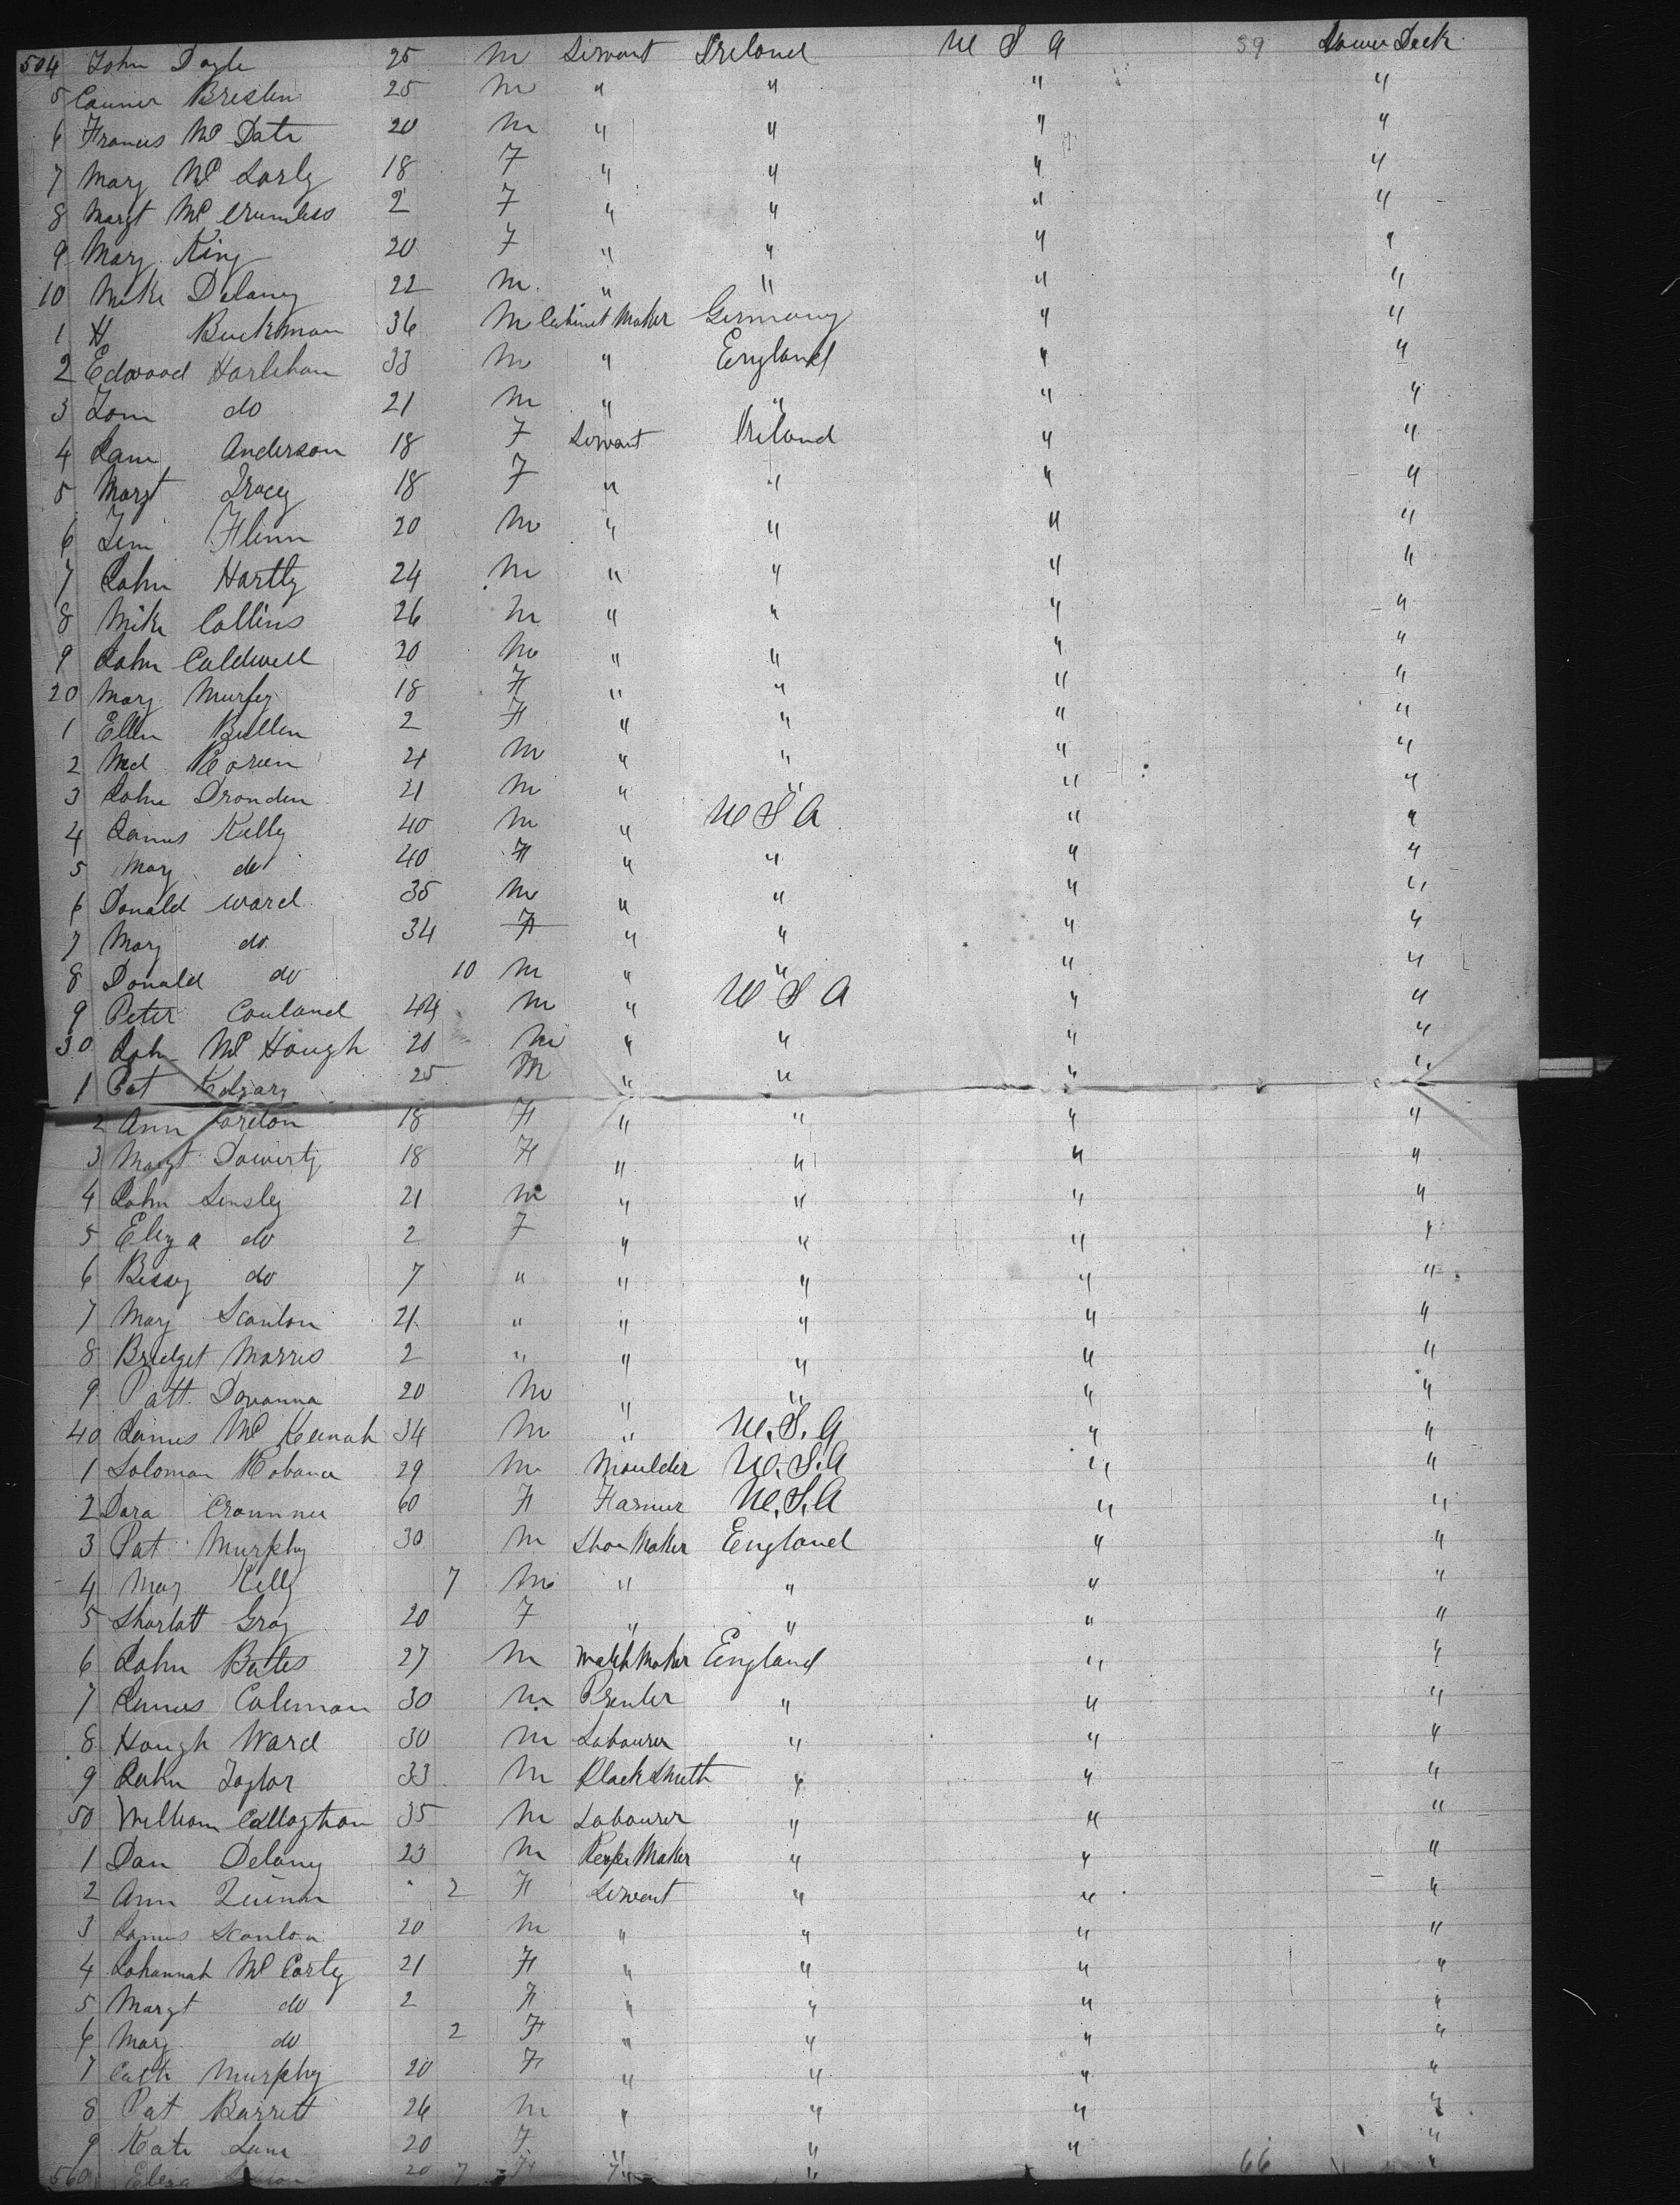 504 John Doyle 25 M Servant Ireland U S A 39 Lower Deck
5 Conner Breslin 25 M " " " "
6 Francis Mc Date 20 M " " " "
7 Mary Mc Sorly 18 F " " " "
8 Margt Mc Crumless 2 F " " " "
9 Mary King 20 F " " " "
10 Mike Delaney 22 M " " " "
1 H Buckman 36 M Cabinet Maker Germany " "
2 Edward Harlihan 33 M " England " "
3 Tom do 21 M " " " "
4 Jane Anderson 18 F Servant Ireland " "
5 Margt Tracy 18 F " " " "
6 Jim Flinn 20 M " " " "
7 John Hartly 24 M " " " "
8 Mike Collins 26 M " " " "
9 John Caldwell 20 M " " " "
20 Mary Murfey 18 F " " " "
1 Ellen Bullen 2 F " " " "
2 Med 21 M " " " "
3 John Dronden 21 M " " " "
4 James Kelly 40 M " U S A " "
5 Mary do 40 F " " " "
6 Donald Ward 35 M " " " "
7 Mary do 34 F " " " "
8 Donald do 10 M " " " "
9 Peter Couland 44 M " U S A " "
30 John Mc Hough 21 M " " " "
1 Pat 25 M " " " "
2 Ann 18 F " " " "
3 Margt Dowerty 18 F " " " "
4 John Linsley 21 M " " " "
5 Eliza do 2 F " " " "
6 Bessy do 7 " " " " "
7 Mary Scanlon 21 " " " " "
8 Bridget Morris 2 " " " " "
9 Patt Dovanna 20 M " " " "
40 James Mc Keenah 34 M " U.S.A " "
1 Soloman Robance 29 M Moulder U.S.A " "
2 Dora 60 F Farmer U.S.A " "
3 Pat Murphy 30 M Shoe Maker England " "
4 May Kelly 7 M " " " "
5 Sharlatt Gray 20 F " " " "
6 John Bates 27 M Watch Maker England " "
7 James Coleman 30 M Prenter " " "
8 Hough Ward 30 M Labourer " " "
9 John Taylor 33 M Black Smith " " "
50 William Callaghan 35 M Labourer " " "
1 Dan Delany 23 M Maker " " "
2 Ann Quinn 2 F Servant " " "
3 James Scanlon 20 M " " " "
4 Johannah Mc Carty 21 F " " " "
5 Margt do 2 F " " " "
6 Mary do 2 F " " " "
7 Cath Murphy 20 F " " " "
8 Pat Barrett 26 M " " " "
9 Kate Lane 20 F " " " "
560 Eliza 20 7 F " " 66 "